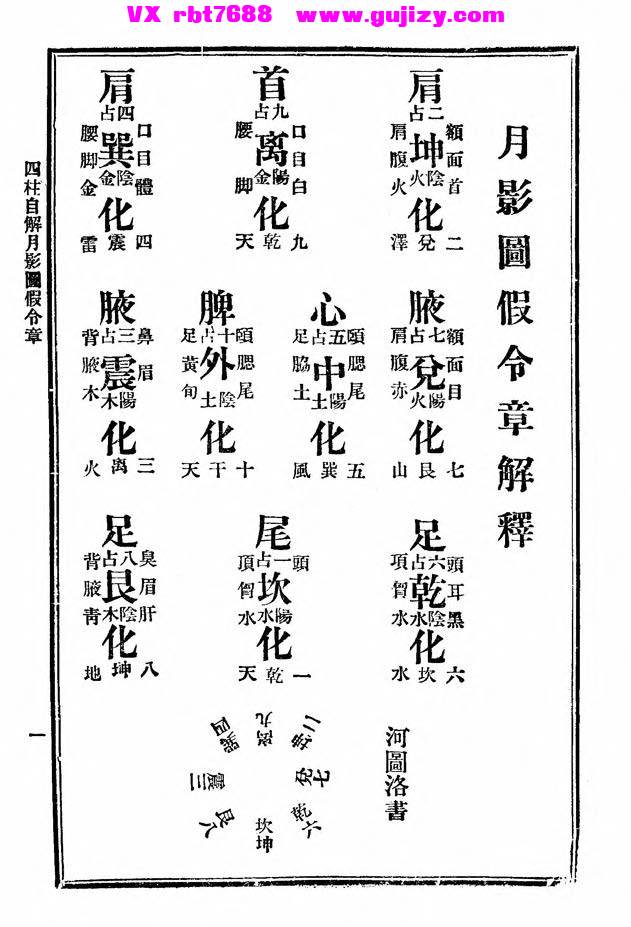 VX rbt7688 www.gujizy.com
月影圖假令章解釋
肩
占二
額面首
坤
肩腹火
火陰
化
二兌澤
首
占九
口目白
离
腰脚
金陽
化
九乾天
肩
占四
口目體
巽
腰脚金
金陰
化
四震雷
腋
占七
額面目
兌
肩腹赤
火陽
化
七艮山
心
占五
頤腮尾
中
足脇土
土陽
化
五巽風
脾
占十
頤腮尾
外
足黃旬
土陰
化
十干天
腋
占三
鼻眉
震
背腋木
木陽
化
三离火
足
占六
頭耳黑
乾
項胷水
水陰
化
六坎水
尾
占一
頭
坎
項胷水
水陽
化
一乾天
足
占八
臭眉肝
艮
背腋靑
木陰
化
八坤地
河圖洛書
二坤
七兌
六乾
坎坤
艮八
震三
四巽
九离
四柱自解月影圖假令章
一